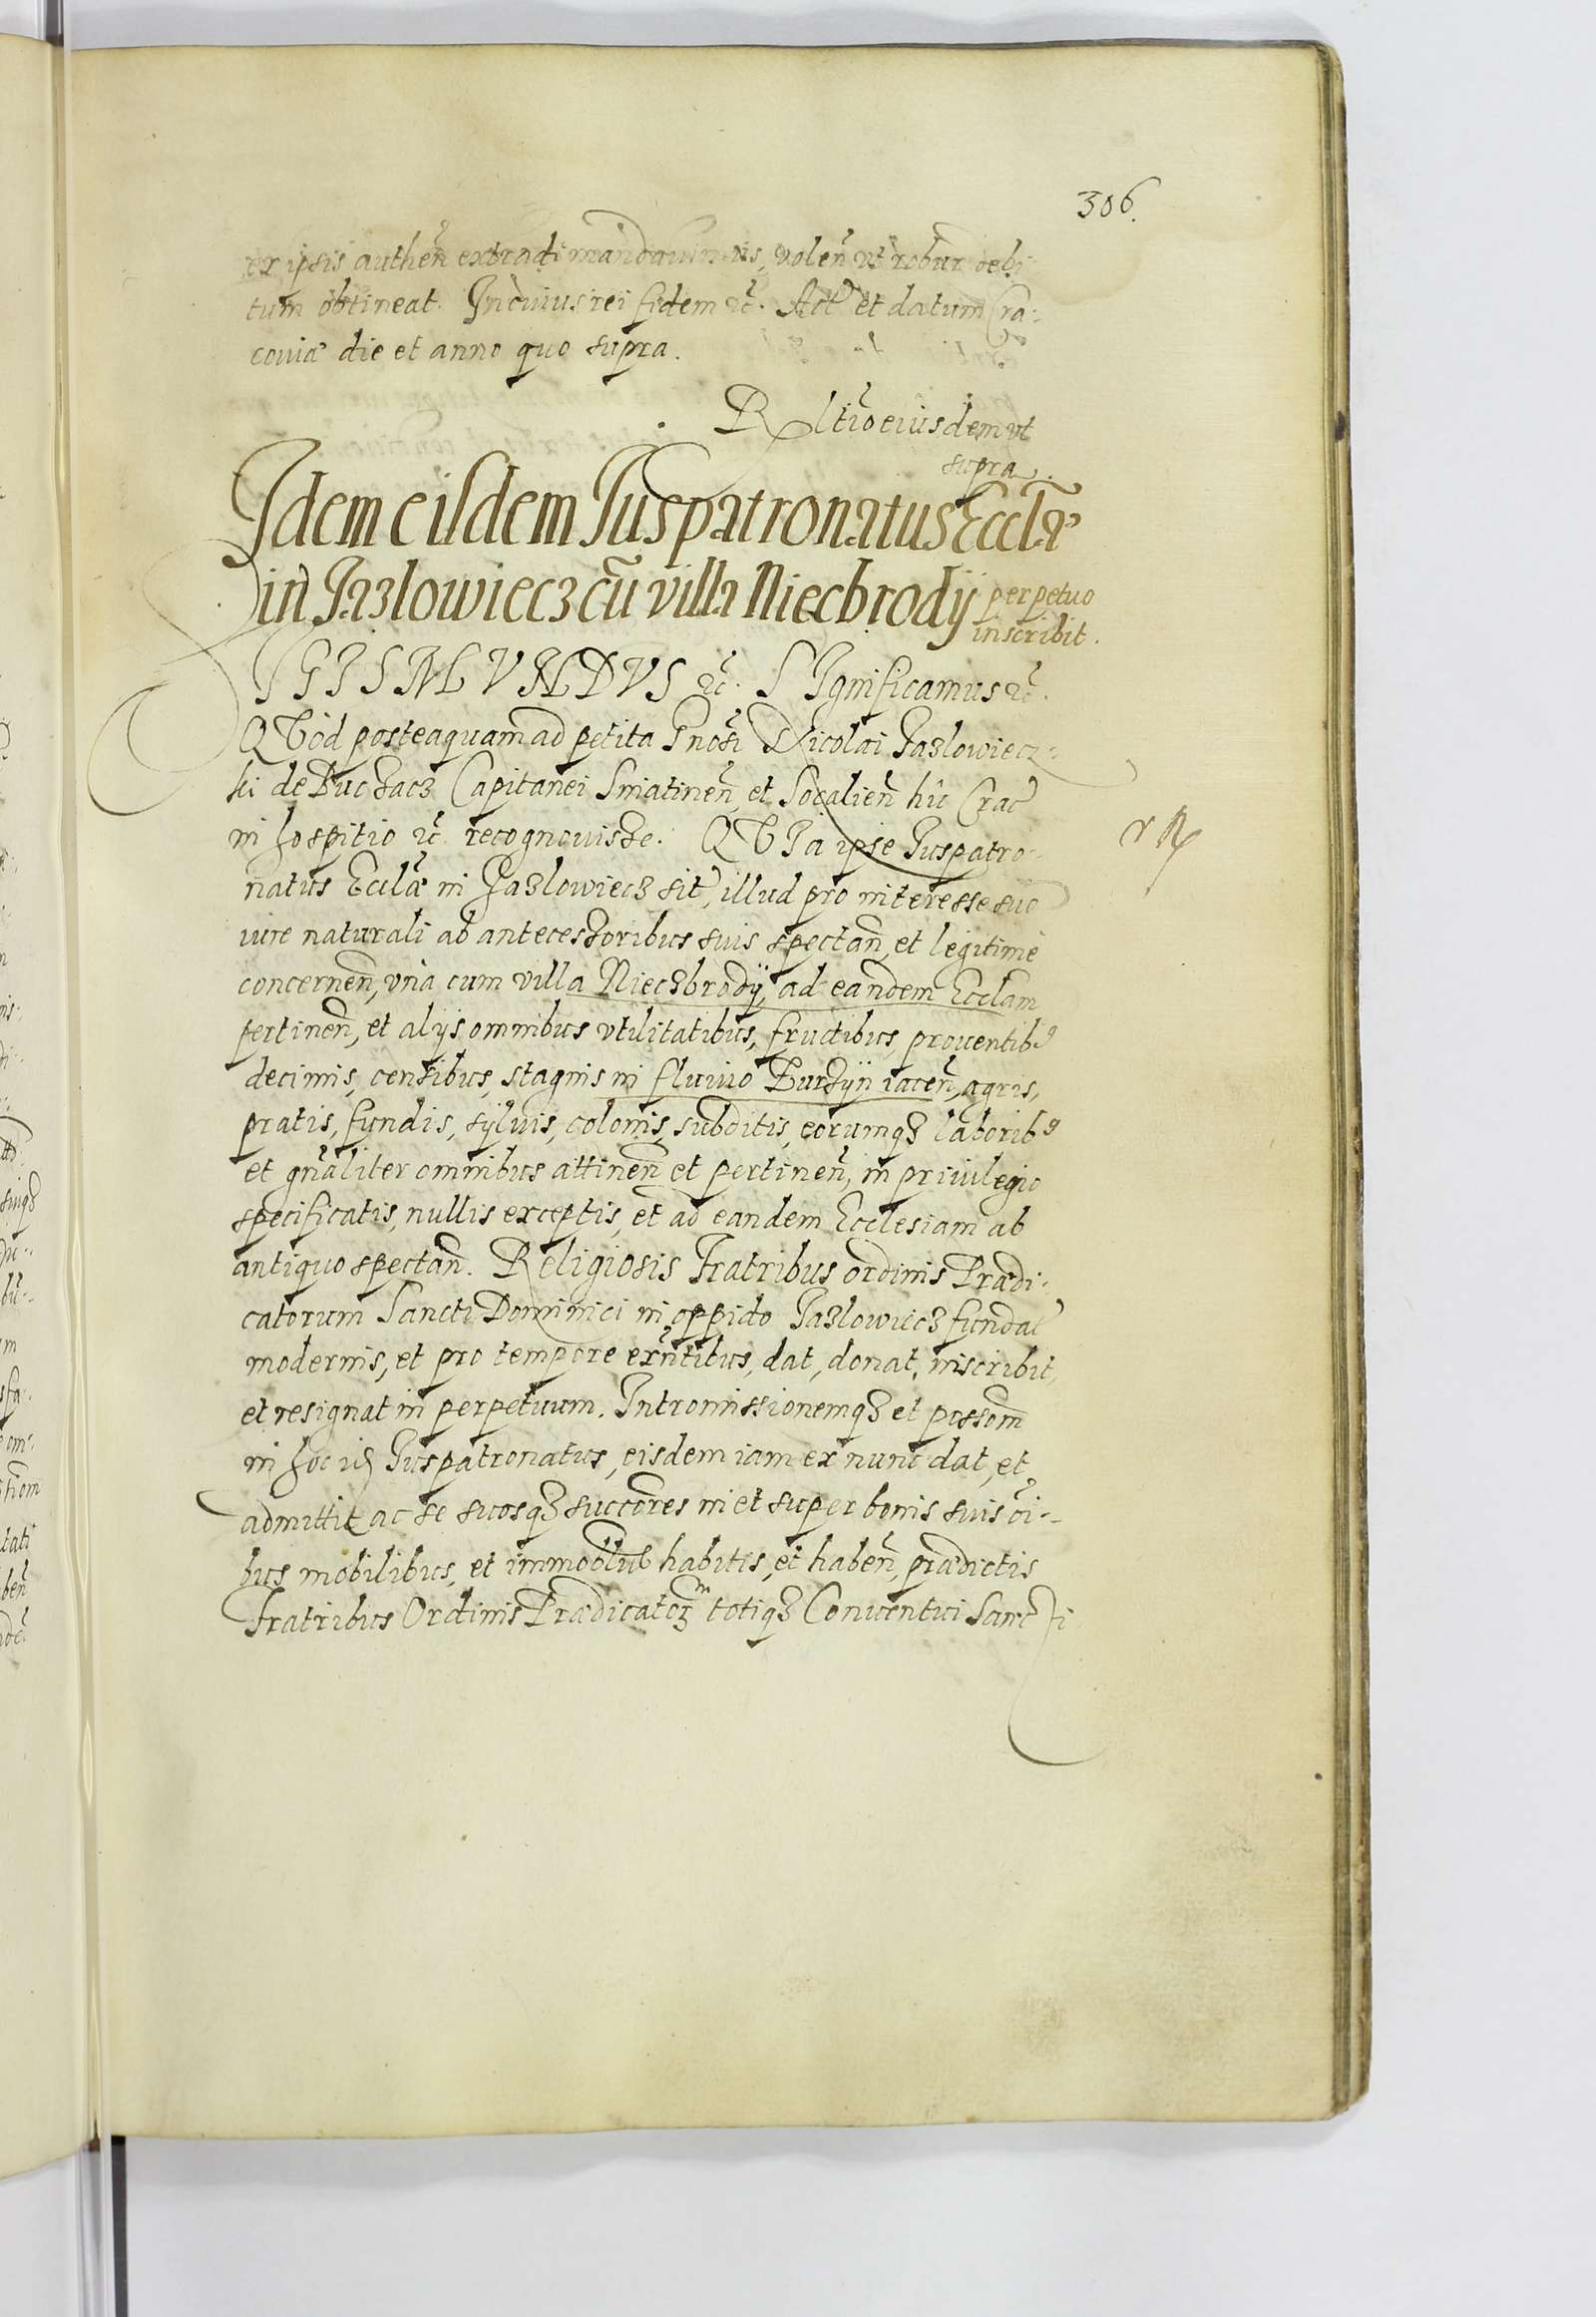 306.
ex ipsis authen̄ extradi mandavimus, volen̄ vt robur debi
tum obtineat. In cuius rei fidem ꝛc̄. Act̄ et datum Cra-
coviæ die et anno quo supra.
Rl̄tio eiusdem vt
supra.
Idem eisdem Juspatronatus Eccl̄æ
in Jazlowiecz cū villa Niecbrodÿ perpetuo
inscribit.
SIGISMUNDVS ꝛc̄. SIgnificamus ꝛc̄.
QVod posteaquam ad petita Gn̄osi Nicolai Jazlowiecz-
ki de Buczacz Capitanei Sniatinen̄ et Socalien̄ hîc Crac̄
in hospitio ꝛc̄ recognovisse. QVIa ipse Juspatro-
natus Eccl̄æ in Jazlowiecz sit, illud pro interesse suo
iure naturali ab antecessoribus suis spectan̄, et legitimè
concernen̄, vnà cum villa Nieczbrodÿ, ad eandem Ecclam
pertinen̄, et alijs omnibus vtilitatibus, fructibus, prouentib9
decimis, censibus, stagnis in fluuio Bursÿn iacen̄, agris,
pratis, fundis, sÿluis, colonis, subditis, eorumqꝫ laborib9
et gn̄aliter omnibus attinen̄ et pertinen̄, in priuilegio
specificatis, nullis exceptis, et ad eandem Ecclesiam ab
antiquo spectan̄. Religiosis Fratribus ordinis Prædi-
catorum Sancti Dominici in oppido Jazlowiecz fundat̄
modernis, et pro tempore exn̄tibus, dat, donat, inscribit,
et resignat in perpetuum. Intromissionemqꝫ et possom̄
in hoc Juspatronatus, eisdem iam ex nunc dat, et
admittit ac se suosqꝫ succōres in et super bonis suis oī-
bus mobilibus, et immobl̄ib habitis, et haben̄, prædictis
Fratribus Ordinis Prædicatoꝝ totiqꝫ Conuentui Sancti